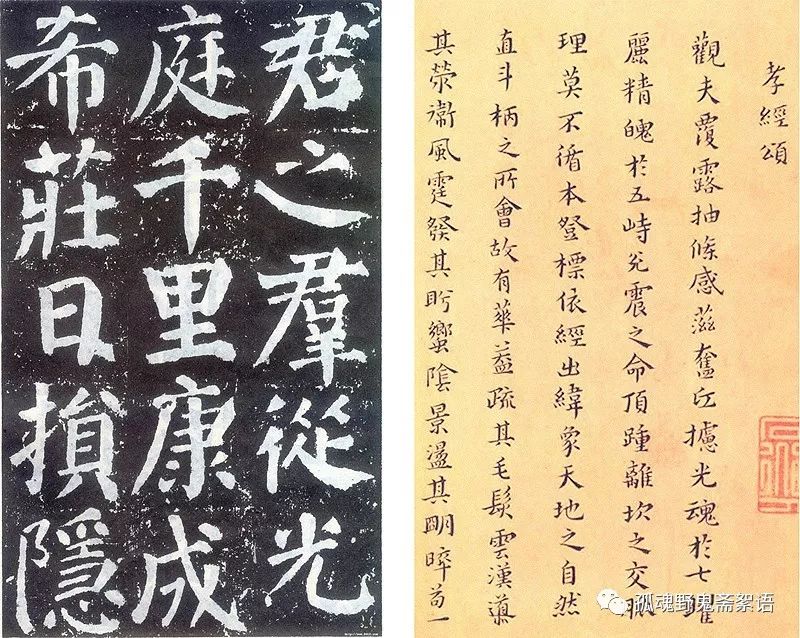 君之羣從光
庭千里康成
希莊日損隱
孝經頌
觀夫覆露抽條感滋奮攄光魂於七曜
麗精魄於五峙兊震之命頂踵離坎之交脈
理莫不循本登標依經出緯象天地之自然
直斗柄之所會故有華蓋疏其毛髮雲漢導
其荣衞風霆發其肹蠁陰景盪其明晬苟一
孤魂野鬼斋絮语